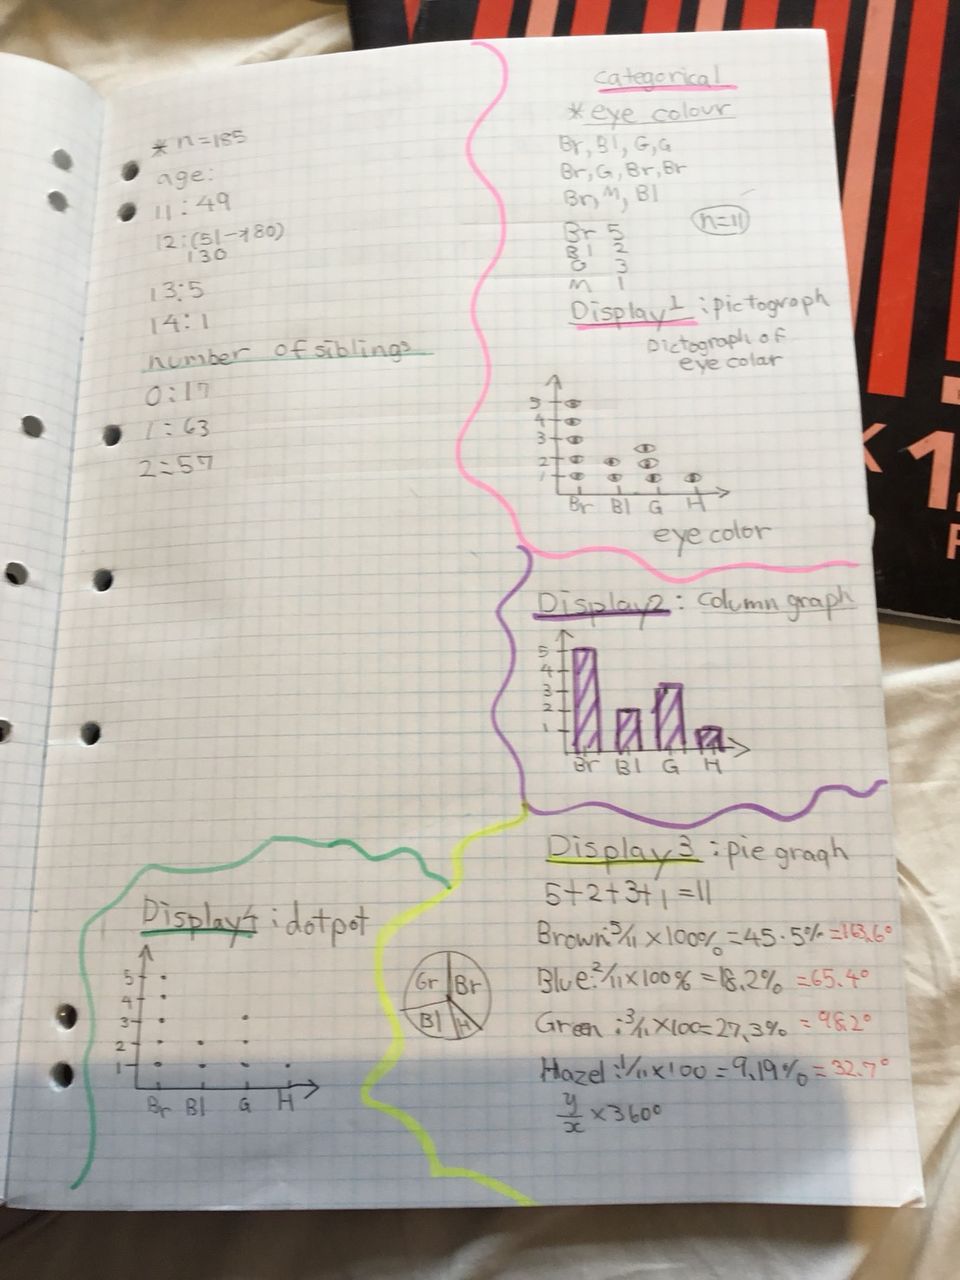 * n=185
age:
11: 49
12:(51→180)
130
13:5
14:1
number of siblings
0:17
1: 63
2:57
categorical
* eye colour
Br, Bl, G, G
Br, G, Br, Br
Br, M, Bl
n=11
Br 5
Bl 2
G 3
M 1
Display 1: pictograph
Pictograph of
eye colar
5
4
3
2
1
Br Bl G H
eye color
Display 2: column graph
5
4
3
2
1
Br Bl G H
Display 3: pie gragh
5+2+3+1=11
Brown:5/11 x100%=45.5%=163.6°
Blue:2/11x100%=18.2%=65.4°
Green:3/11x100=27.3%=98.2°
Hazel:1/11x100=9.19%=32.7°
y/x x360°
Gr Br
Bl H
Display 4: dotpot
5
4
3
2
1
Br Bl G H